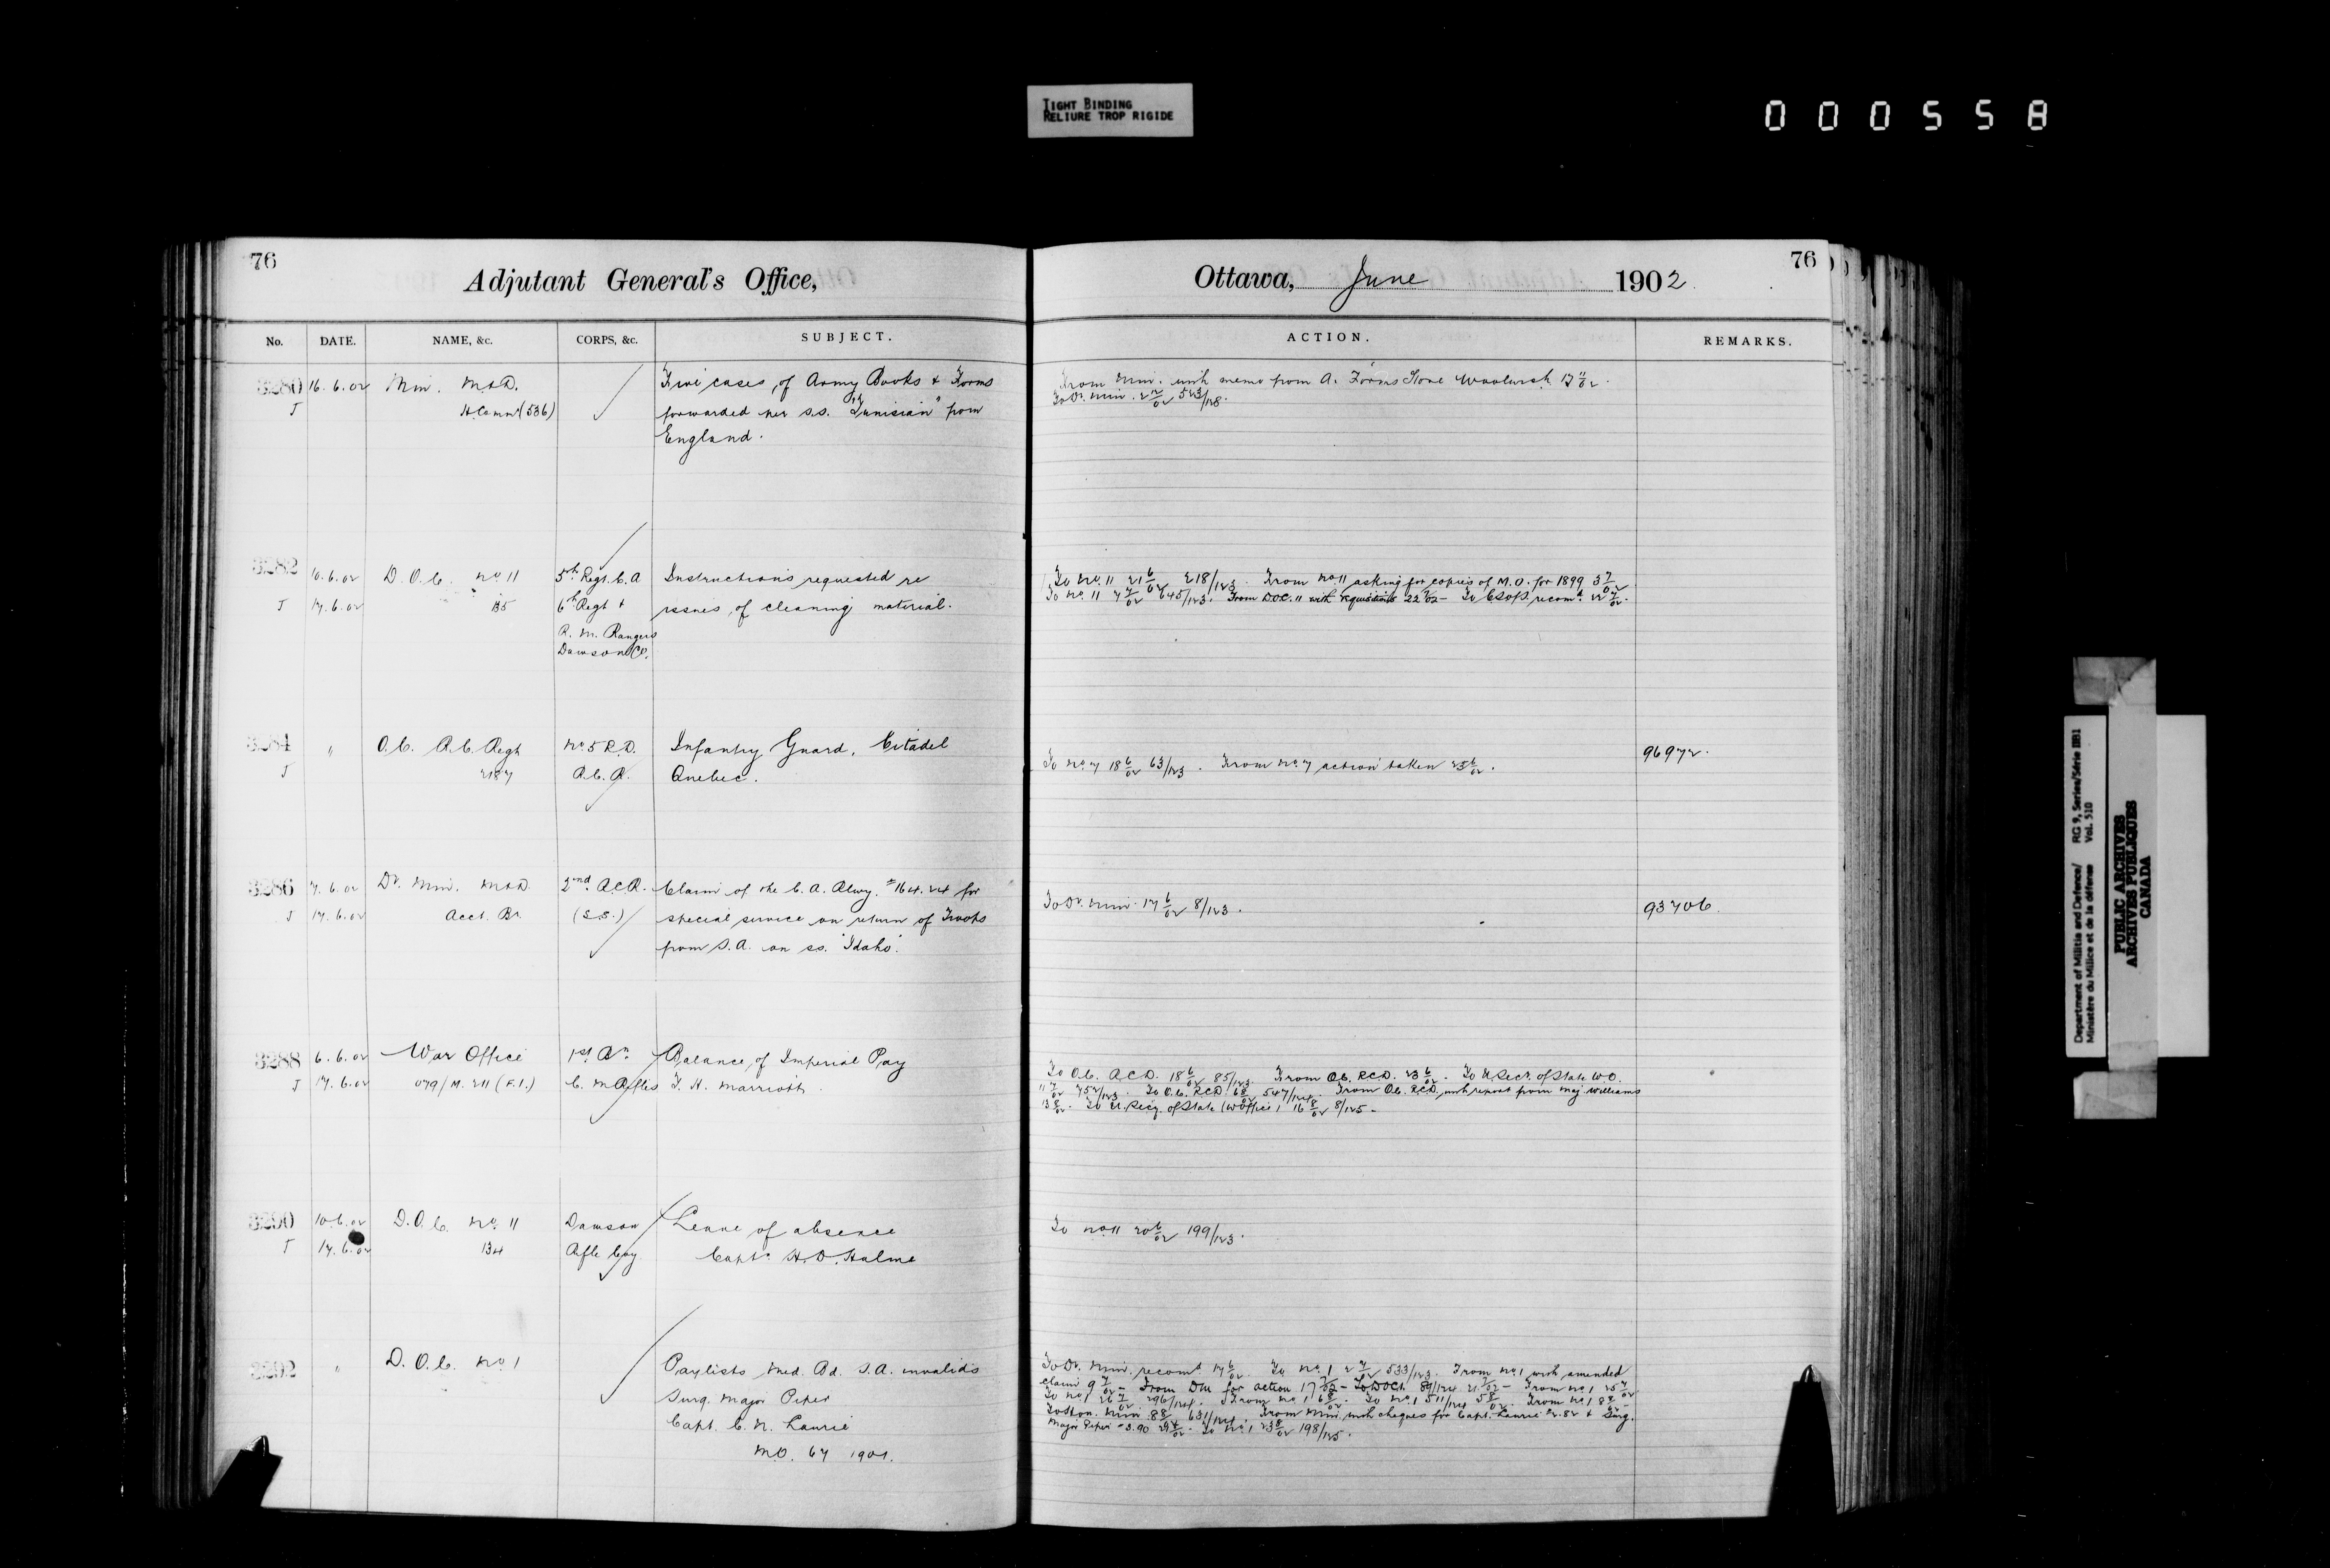 TIGHT BINDING
RELIURE TROP RIGIDE
000558
76
Adjutant General's Office,
No. DATE. NAME, &c. CORPS, &c. SUBJECT.
3280 16.6.02 Min. M&D. Five cases of Army Books & Forms
J H Comnr (536) forwarded per s.s. "Tunisian" from
England.
3282 10.6.02 D.O.C. No. 11 5th Regt. C.A Instructions requested re
J 17.6.02 135 6th Regt & issues of cleaning material.
R. M. Rangers
Dawson Co.
3284 " O.C. R.C. Regt No 5 R.D. Infantry Guard, Citadel
J 2127 R.C.R. Quebec.
3286 7.6.02 Dr. Min. M&D. 2nd R.C.R. Claim of the C.A. Rlwy. $164.24 for
J 17.6.02 Acct. Br. (S.S.) special service on return of Troops
from S.A. on ss. "Idaho".
3288 6.6.02 War Office 1st Bn. Balance of Imperial Pay
J 17.6.02 079/M. 211 (F.1.) C. M. Rifles T. H. Marriott
3290 10.6.02 D.O.C. No. 11 Dawson Leave of absence
J 17.6.02 134 Rfle Coy. Capt. H.D. Hulme
3292 " D.O.C. No. 1 Paylists Med. Bd. S.A. invalids
Surg. Major Piper
Capt. C. N. Laurie
M.O. 67 1901.
76
Ottawa, June 1902
ACTION. REMARKS.
From Min. with memo from A. Forms Store Woolwich
To Dr. Min. 523/128.
To No. 11 21 6/02 218/123. From No 11 asking for copies of M.O. for 1899 3 7/02
To No 11 7 7/02 645/123. From D.O.C. 11 with requisitions 22 7/02 - To recomd. 22 7/02.
96972.
To No 7 18 6/02 63/123. From No 7 action taken 25 6/02.
To Dr. Min. 17 6/02 8/123. 93706.
To O.C. R.C.D. 18 6/02 85/123. From O.C. R.C.D. 23 6/02. To U Secy. of State W.O.
11 7/02 752/123. To O.C. R.C.D. 6 8/02 547/124. From O.C. R.C.D. with report from Maj. Williams
13 8/02. To U. Secy. of State (W Office) 16 8/02 8/125 -
To No 11 20 6/02 199/123.
To Dr. Min. recomd 17 6/02. To No. 1 2 7/02 533/123. From No. 1 with amended
claim 9 7/02 - From DM for action 17 7/02 - To DOC 1 89/124 21 7/02 - From No 1 25 7/02
To No. 1 26 7/02 296/124. From No. 1 6 8/02. To No. 1 511/124 5 8/02. From No. 1 8 8/02 -
To Hon. Min. 8 8/02 631/124. From Min. with cheques for Capt. Laurie $2.82 & Surg.
Major Piper $3.90 To No. 1 23 8/02 198/125.
Department of Militia and Defence/ RG 9, Series/Série IIB1
Ministère du Milice et de la défense Vol. 510
PUBLIC ARCHIVES
ARCHIVES PUBLIQUES
CANADA